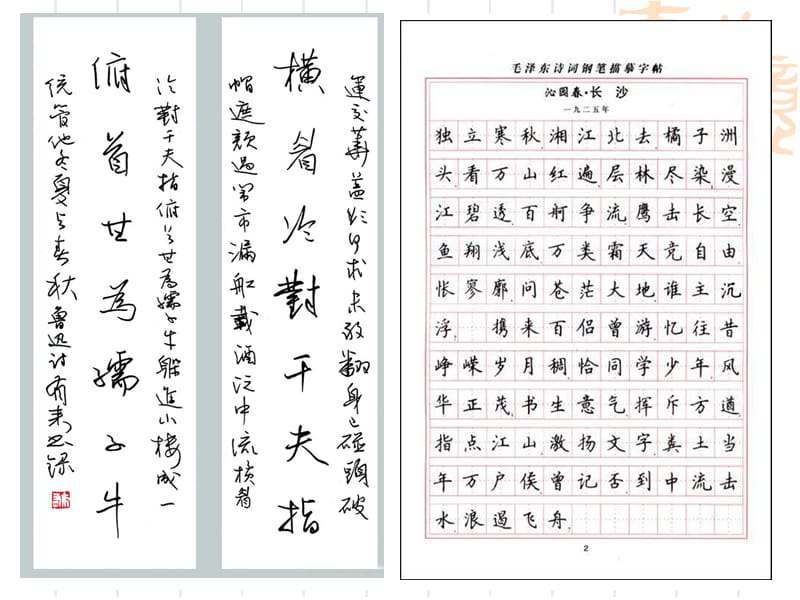 運交華蓋欲何求未敢翻身已碰頭破
橫眉冷對千夫指
帽遮顏過鬧市漏船載酒泛中流橫眉
冷對千夫指俯首甘為孺子牛躲進小樓成一
俯首甘為孺子牛
统管他冬夏与春秋 鲁迅诗
毛泽东诗词钢笔描摹字帖
沁园春·长沙
一九二五年
独立寒秋湘江北去橘子洲
头看万山红遍层林尽染漫
江碧透百舸争流鹰击长空
鱼翔浅底万类霜天竞自由
怅寥廓问苍茫大地谁主沉
浮 携来百侣曾游忆往昔
峥嵘岁月稠恰同学少年风
华正茂书生意气挥斥方遒
指点江山激扬文字粪土当
年万户侯曾记否到中流击
水浪遏飞舟
2